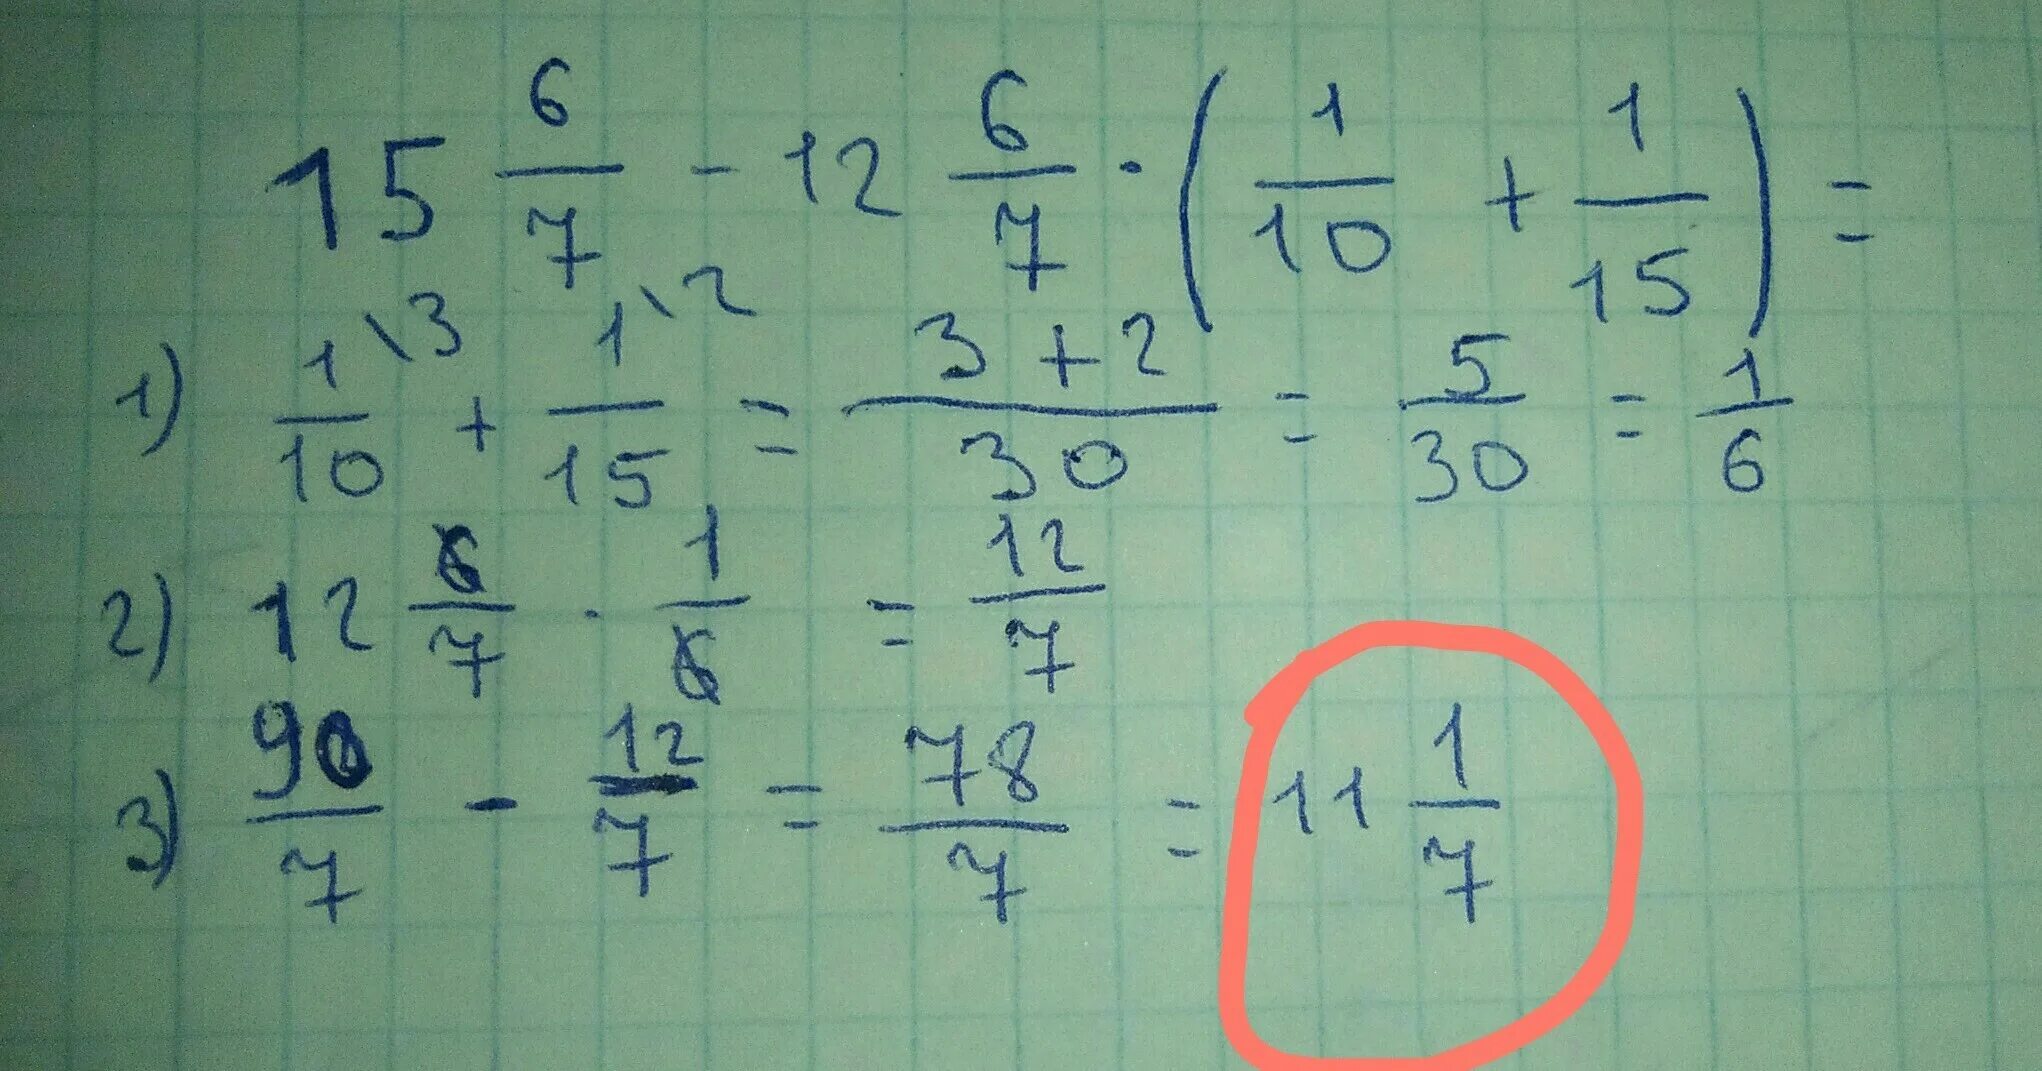 15 6/7 - 12 6/7 · (1/10 + 1/15) =
1) 1\3/10 + 1\2/15 = 3+2/30 = 5/30 = 1/6
2) 12 6/7 · 1/6 = 12/7
3) 90/7 - 12/7 = 78/7 = 11 1/7